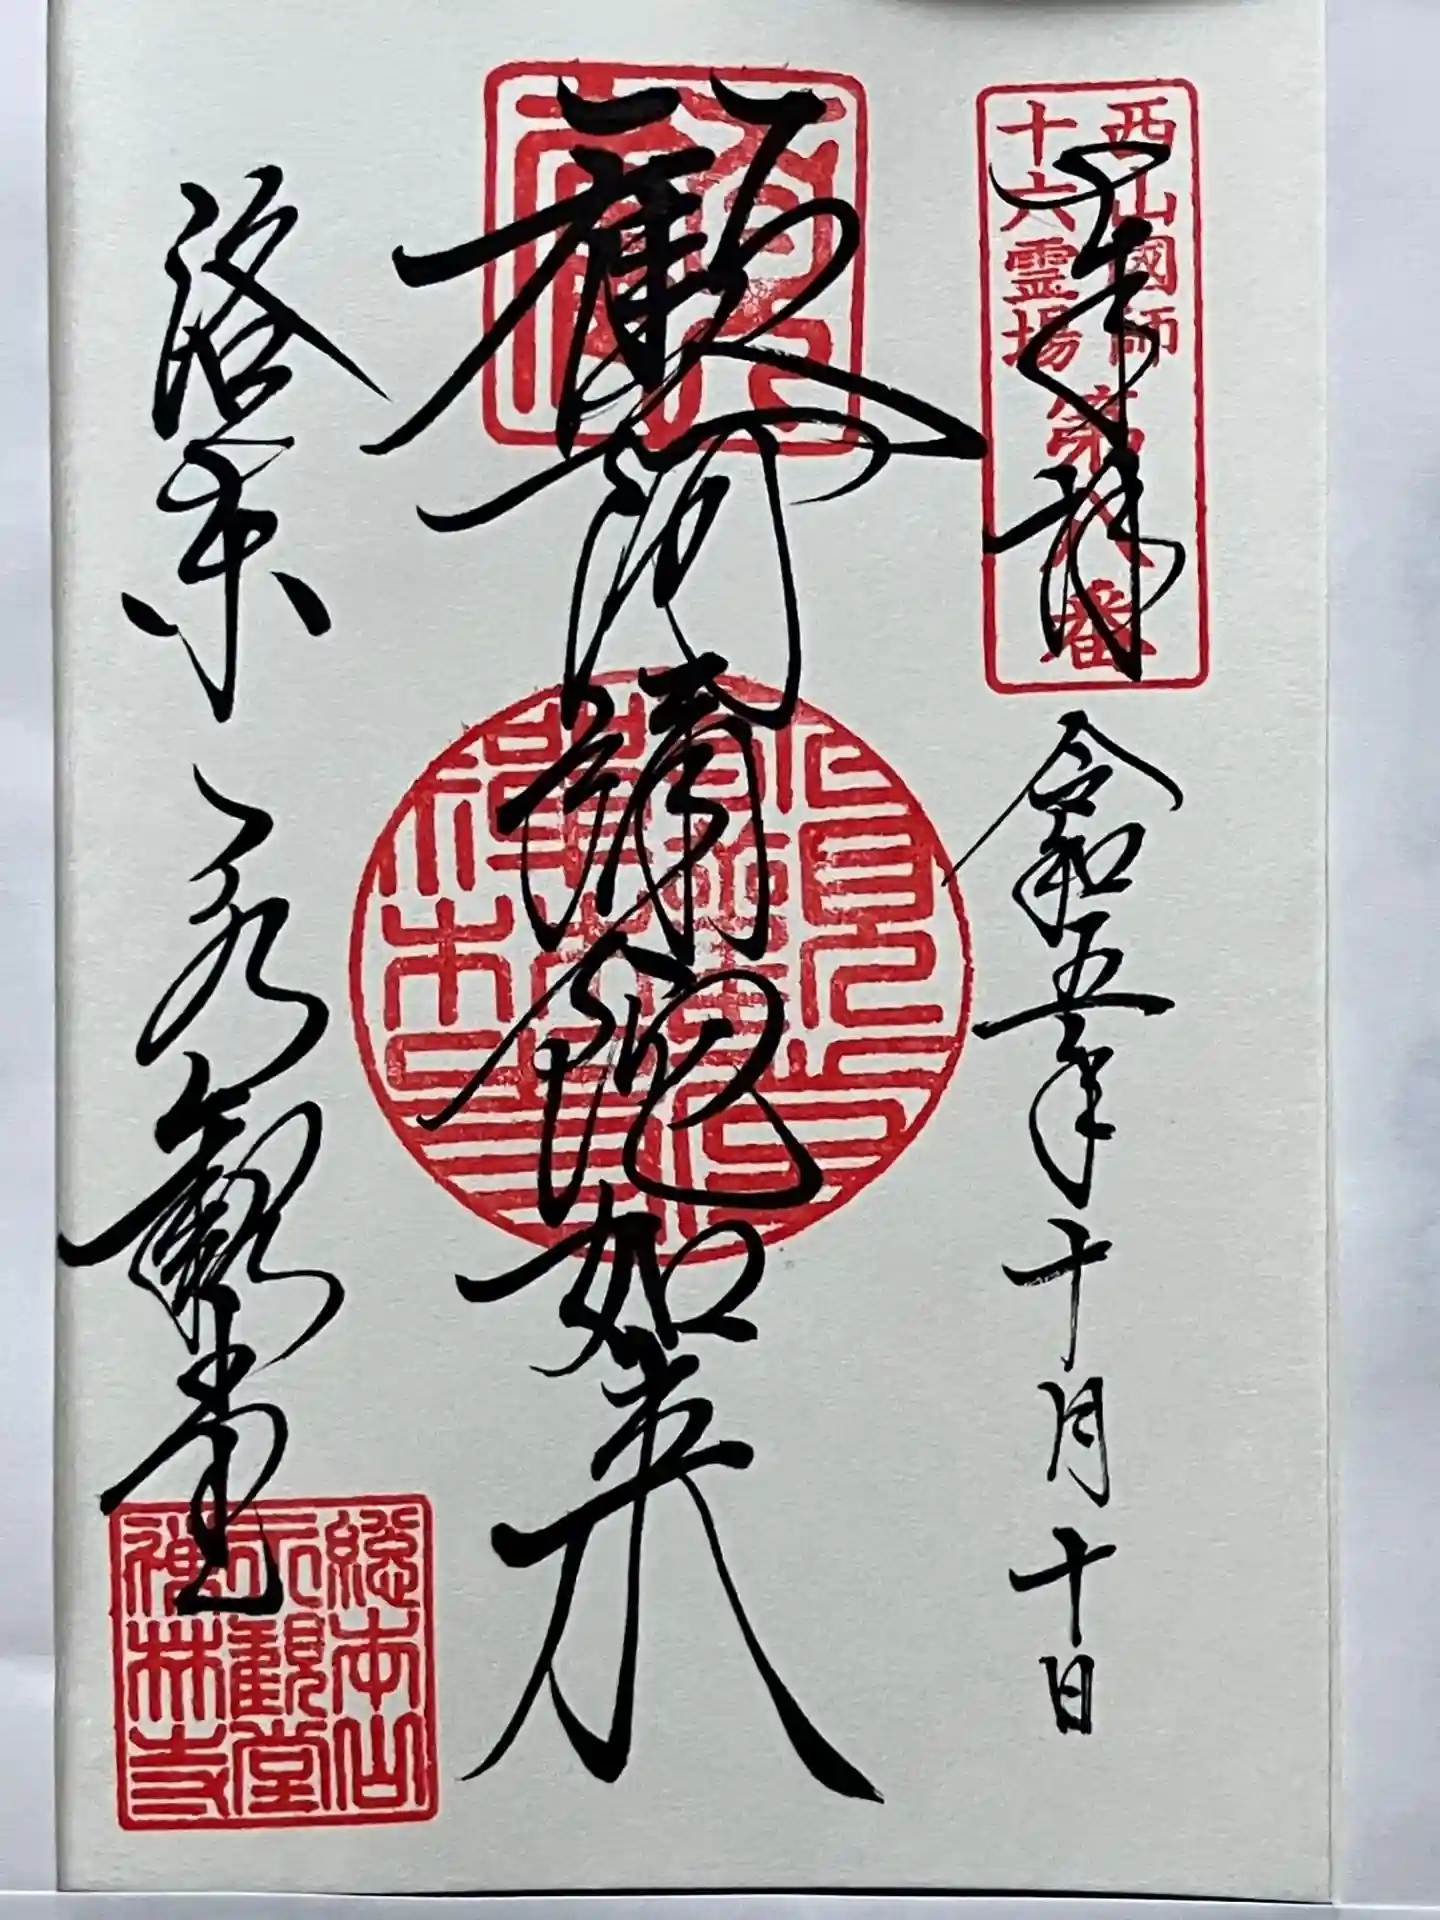 西山國師
十六霊場
第八番
奉拝
令和五年十月十日
顧阿彌陀如来
洛東 永観堂
総本山
永観堂
禅林寺